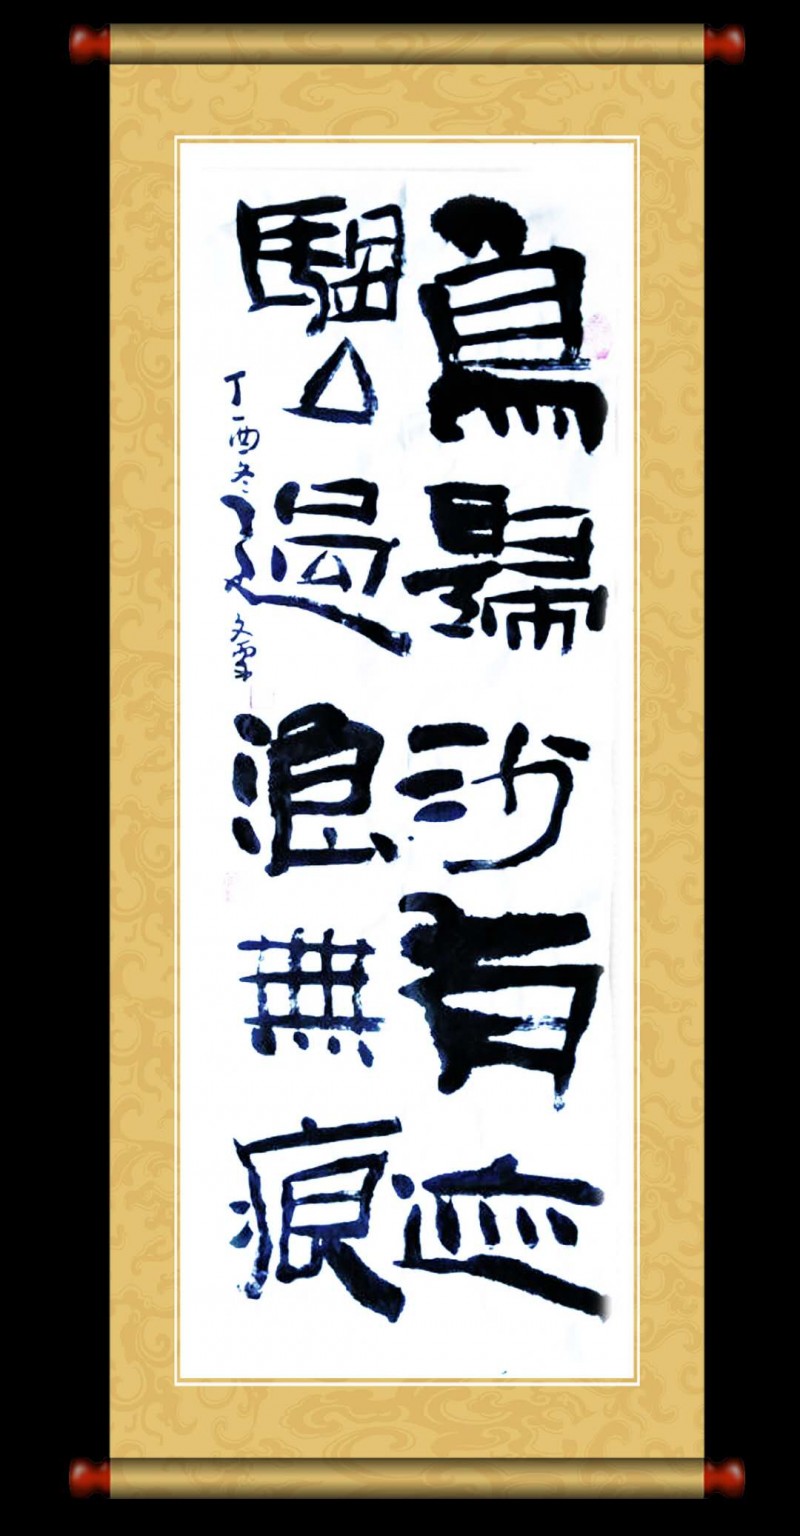 鳥歸沙有迹
過浪無痕
丁酉冬文